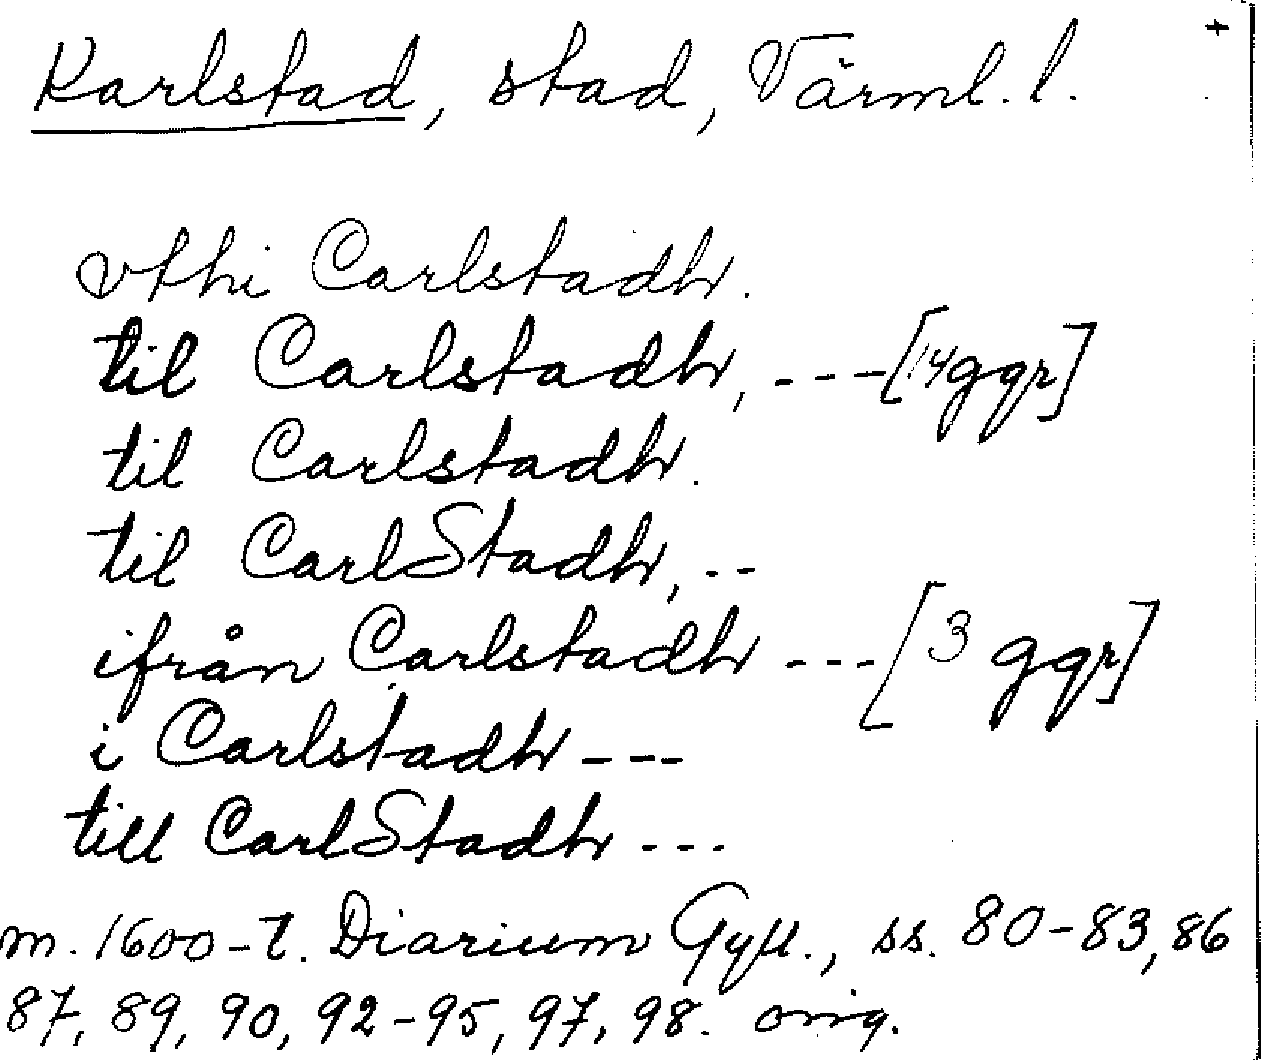 Karlstad, stad, Värml. l. +
vthi Carlstadh.
til Carlstadh, ---[14 ggr]
til Carlstadh.
til CarlStadh, --
ifrån Carlstadh ---[3 ggr]
i Carlstadh ---
till CarlStadh ---
m. 1600-t. Diarium Gyll., ss. 80-83, 86
87, 89, 90, 92-95, 97, 98. orig.